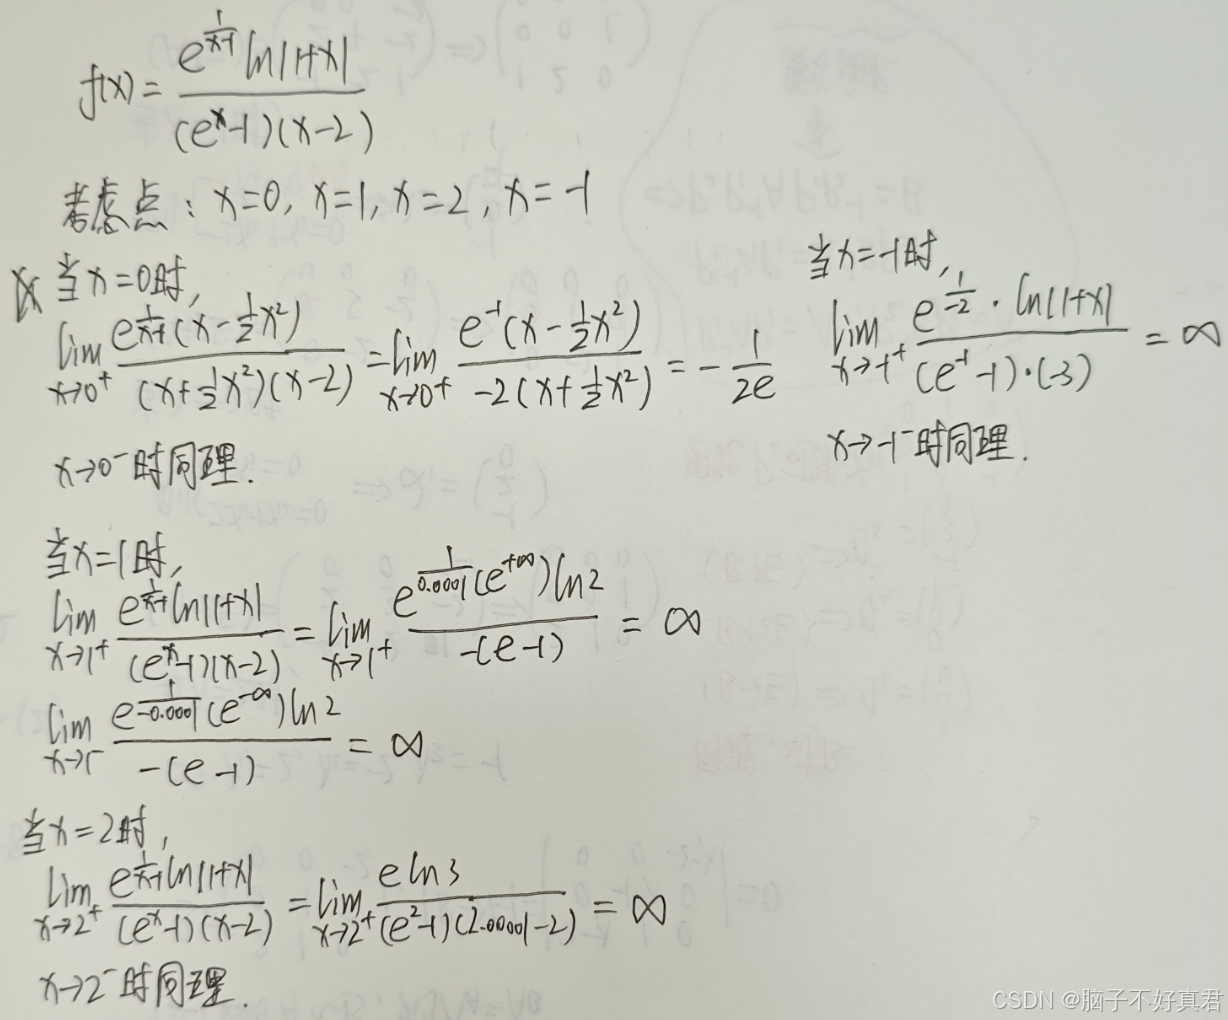 f(x) = \frac{e^{\frac{1}{x-1}} ln|1+x|}{(e^x-1)(x-2)}
考虑点: x=0, x=1, x=2, x=-1
当x=0时,
\lim_{x→0^+} \frac{e^{\frac{1}{x-1}}(x-\frac{1}{2}x^2)}{(x+\frac{1}{2}x^2)(x-2)} = \lim_{x→0^+} \frac{e^{-1}(x-\frac{1}{2}x^2)}{-2(x+\frac{1}{2}x^2)} = -\frac{1}{2e}
x→0^- 时同理.
当x=-1时,
\lim_{x→-1^+} \frac{e^{\frac{1}{-2}} · ln|1+x|}{(e^{-1}-1)·(-3)} = ∞
x→-1^- 时同理.
当x=1时,
\lim_{x→1^+} \frac{e^{\frac{1}{x-1}} ln|1+x|}{(e^x-1)(x-2)} = \lim_{x→1^+} \frac{e^{\frac{1}{0.0001}}(e^{+∞}) ln2}{-(e-1)} = ∞
\lim_{x→1^-} \frac{e^{\frac{1}{-0.0001}}(e^{-∞}) ln2}{-(e-1)} = ∞
当x=2时,
\lim_{x→2^+} \frac{e^{\frac{1}{x-1}} ln|1+x|}{(e^x-1)(x-2)} = \lim_{x→2^+} \frac{e ln3}{(e^2-1)(2.00001-2)} = ∞
x→2^- 时同理.
CSDN @脑子不好真君